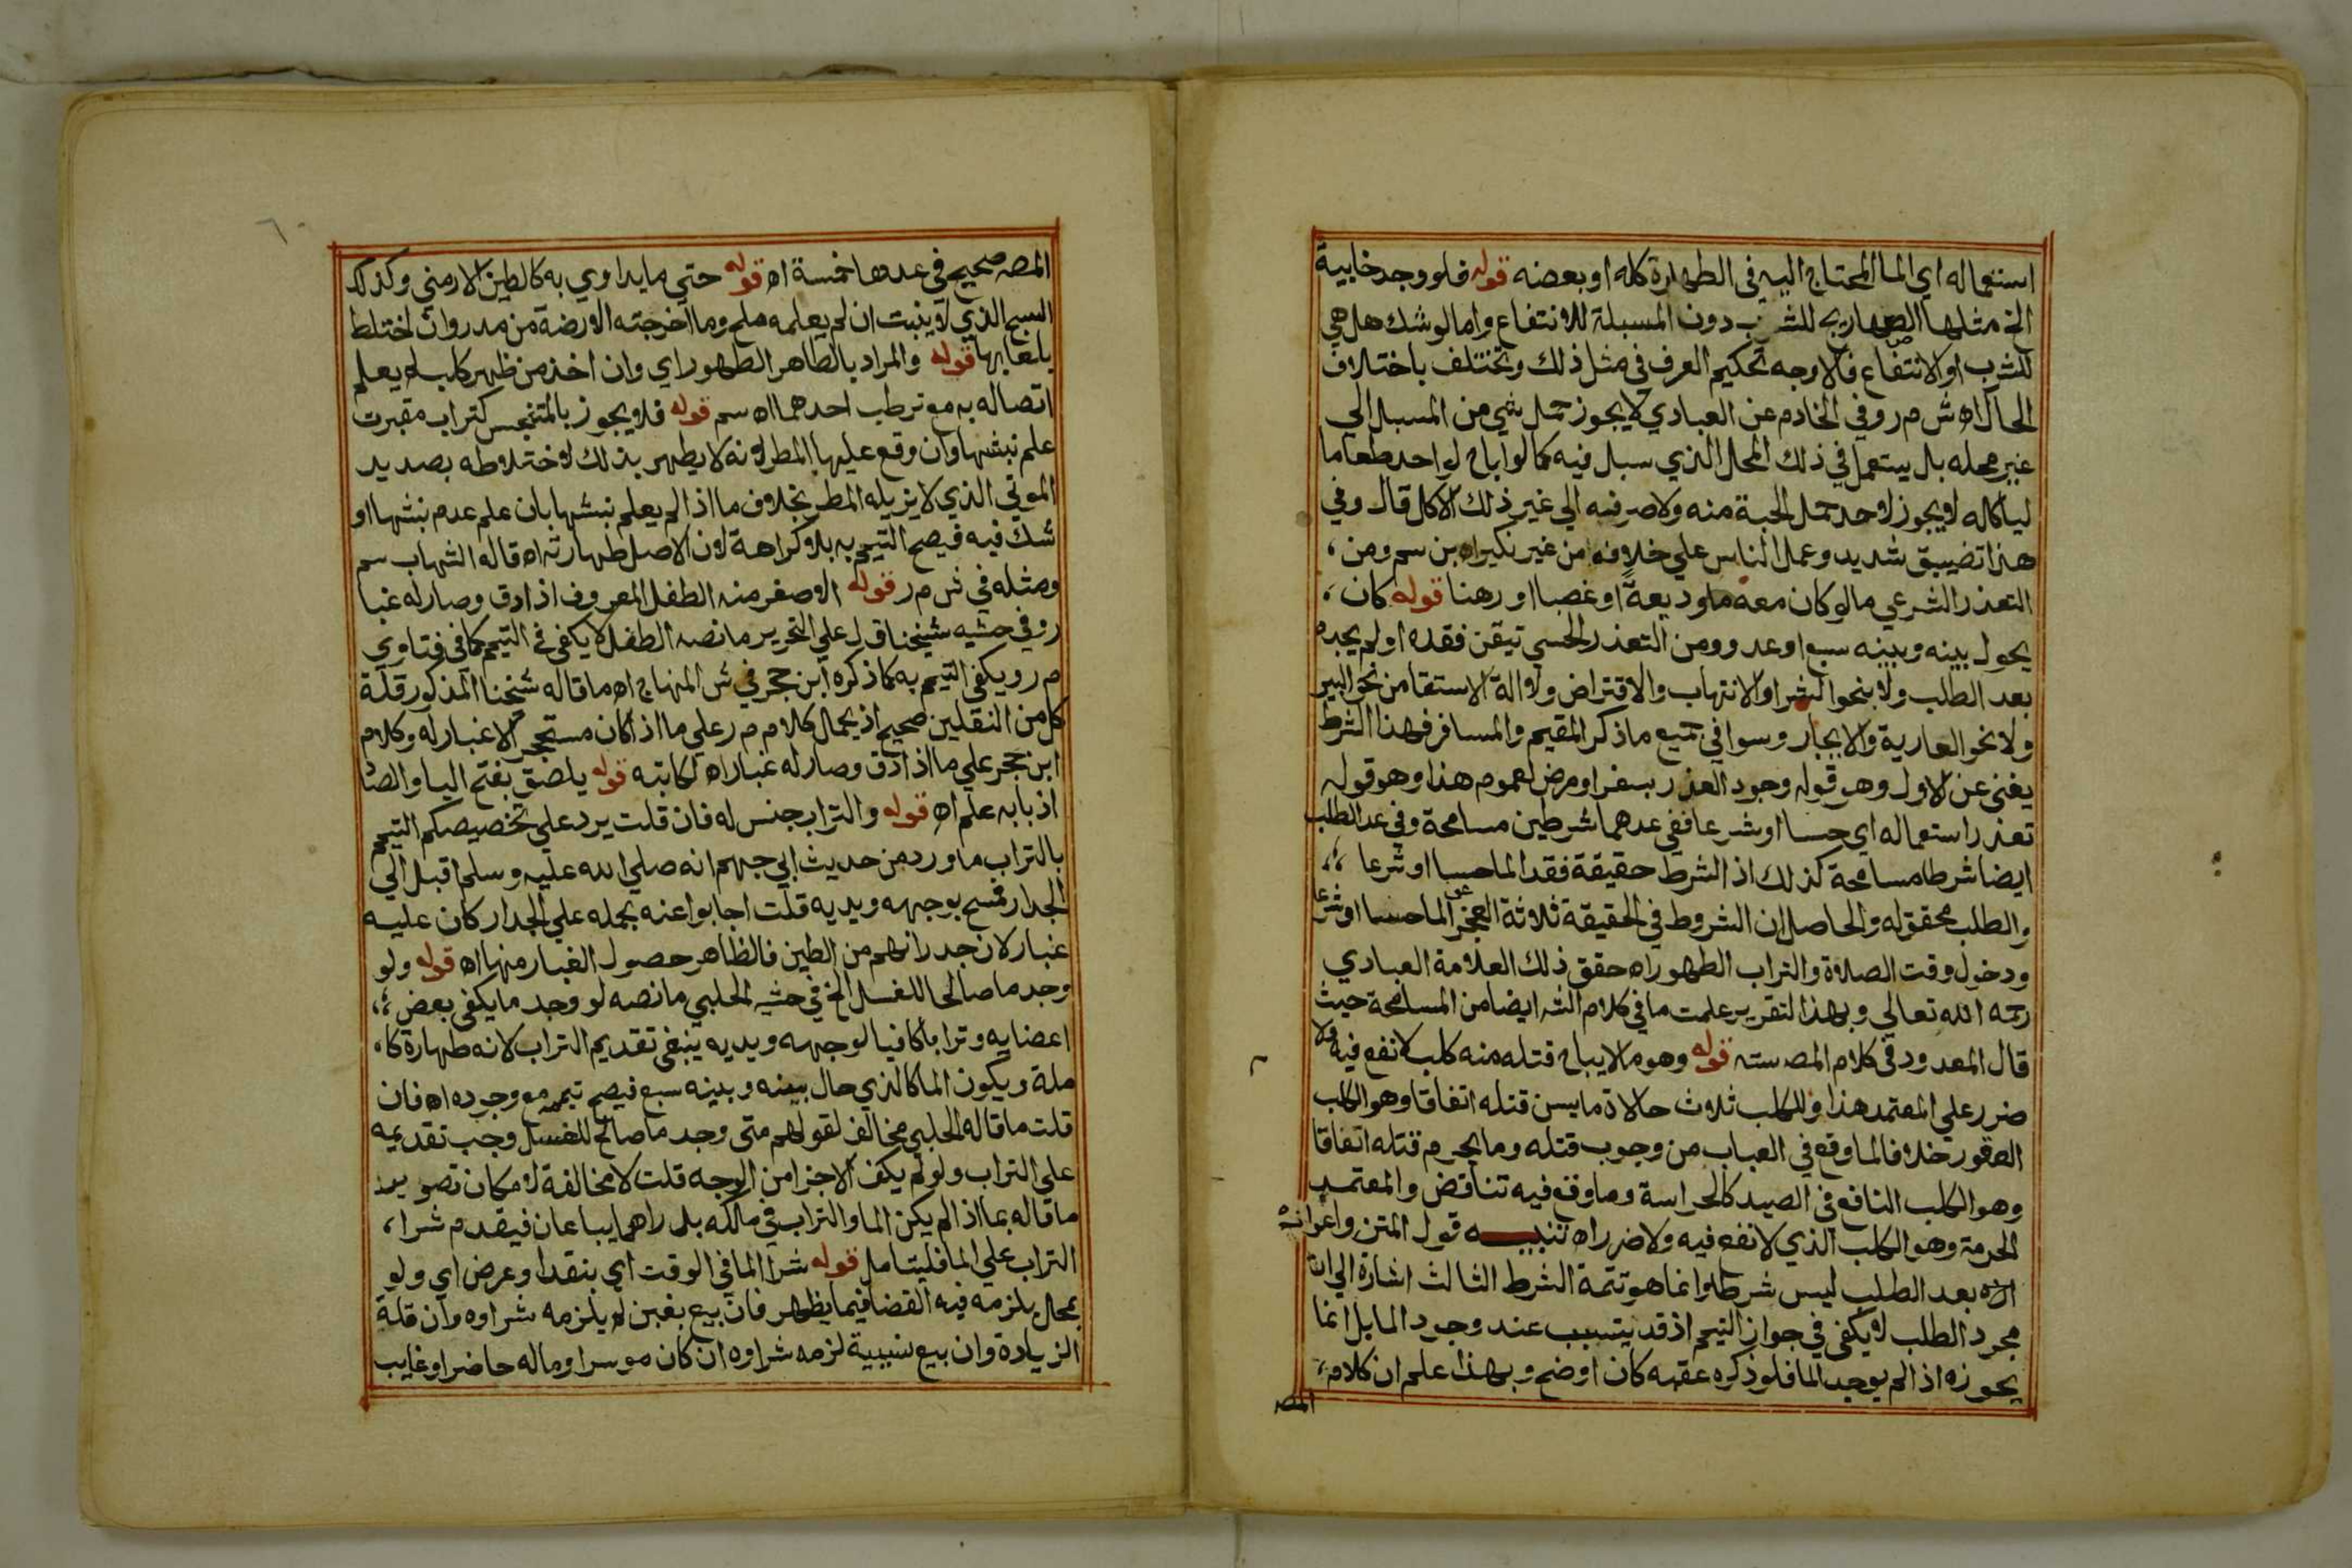 استعماله اي الما المحتاج اليه في الطهارة كله او بعضه قوله فلو وجد خابية
الخ مثلها الصهاريج للشرب دون المسبلة للانتفاع واما لو شك هل هي
للشرب او الانتفاع فالاوجه تحكيم العرف في مثل ذلك ويختلف باختلاف
الحال اه ش م ر وفي الخادم عن العبادي لا يجوز حمل شي من المسبل الي
غير محله بل يستعمل في ذلك المحل الذي سبل فيه كما لو اباح لواحد طعاما
لياكله لا يجوز لاحد حمل الحبة منه ولا صرفه الي غير ذلك الاكل قال وفي
هذا تضييق شديد وعمل الناس علي خلافه من غير نكير اه بن سم ومن ،
التعذر الشرعي ما لو كان معه ما وديعة او غصبا او رهنا قوله كان ،
يحول بينه وبينه سبع او عدو ومن التعذر الحسي تيقن فقده او لم يجده
بعد الطلب ولا بنحو الشرا والانتهاب والاقتراض ولا الة الاستقا من نحو البير
ولا نحو العارية والايجار وسوا في جميع ما ذكر المقيم والمسافر فهذا الشرط
يغني عن الاول وهو قوله وجود العذر بسفر او مرض لعموم هذا وهو قوله
تعذر استعماله اي حسا او شرعا ففي عدهما شرطين مسامحة وفي عد الطلب
ايضا شرطا مسامحة كذلك اذ الشرط حقيقة فقد الما حسا او شرعا ،،
والطلب محقق له والحاصل ان الشروط في الحقيقة ثلاثة العجز عن الما حسا او شرعا
ودخول وقت الصلاة والتراب الطهور اه حقق ذلك العلامة العبادي
رحمه الله تعالي وبهذا التقرير علمت ما في كلام الشه ايضا من المسامحة حيث
قال المعدود في كلام المصه سته قوله وهو ما لا يباح قتله منه كلب لا نفع فيه ولا
ضرر علي المعتمد هذا وللكلب ثلاث حالاة ما يسن قتله اتفاقا وهو الكلب
العقور خلافا لما وقع في العباب من وجوب قتله وما يحرم قتله اتفاقا
وهو الكلب النافع في الصيد كالحراسة وما وقع فيه تناقض والمعتمد
الحرمة وهو الكلب الذي لا نفع فيه ولا ضرر اه تنبيه قول المتن واعوازه
بعد الطلب ليس شرطا وانما هو تتمة الشرط الثالث اشارة الي ان
مجرد الطلب لا يكفي في جواز التيمم اذ قد يتسبب عند وجود الما بل انما
يجوزه اذا لم يوجد الما فلو ذكره عقبه كان اوضح وبهذا علم ان كلام ،
المصه
٦٠
المصه صحيح في عدها خمسة اه قوله حتي ما يداوي به كالطين الارمني وكذلك
السبخ الذي لا ينبت ان لم يعلمه ملح وما اخرجته الارضة من مدر وان اختلط
بلعابها قوله والمراد بالطاهر الطهور اي وان اخذ من ظهر كلب لم يعلم
اتصاله به مع ترطب احدهما اه سم قوله فلا يجوز بالمتنجس كتراب مقبرت
علم نبشها وان وقع عليها المطر لانه لا يطهر بذلك لاختلاطه بصديد
الموتي الذي لا يزيله المطر بخلاف ما اذا لم يعلم نبشها بان علم عدم نبشها او
شك فيه فيصح التيمم به بلا كراهة لان الاصل طهارته اه قاله الشهاب سم
ومثله في ش م ر قوله الاصفر منه الطفل المعروف اذا دق وصار له غبا
ر وفي حشيه شيخنا قل علي التحرير ما نصه الطفل لا يكفي في التيمم كما في فتاوي
م ر ويكفي التيمم به كما ذكره ابن حجر في ش المنهاج اه ما قاله شيخنا المذكور قلة
كل من النقلين صحيح اذ يحمل كلام م ر علي ما اذا كان مستحجر الا غبار له وكلام
ابن حجر علي ما اذا دق وصار له غبار اه لكاتبه قوله يلصق بفتح اليا والصا
اذ بابه علم اه قوله والتراب جنس له فان قلت يرد علي تخصيصكم التيمم
بالتراب ما ورد من حديث ابي جهم انه صلي الله عليه وسلم اقبل الي
الجدار فمسح بوجهه ويديه قلت اجابوا عنه بحمله علي الجدار كان عليه
غبار لان جدرانهم من الطين فالظاهر حصول الغبار منها اه قوله ولو
وجد ما صالحا للغسل الخ في حشيه الحلبي ما نصه لو وجد ما يكفي بعض ،،
اعضايه وترابا كافيا لوجهه ويديه ينبغي تقديم التراب لانه طهارة كا ،
ملة ويكون الما كالذي حال بينه وبينه سبع فيصح تيممه مع وجوده اه فان
قلت ما قاله الحلبي مخالف لقولهم متي وجد ما صالح للغسل وجب تقديمه
علي التراب ولو لم يكف الا جزا من الوجه قلت لا مخالفة لامكان تصوير
ما قاله بما اذا لم يكن الما والتراب في ملكه بل راهما يباعان فيقدم شرا ،
التراب علي الما فليتامل قوله شرا الما في الوقت اي بنقد او عرض اي ولو
بمحل يلزمه فيه القضا فيما يظهر فان بيع بغبن لم يلزمه شراوه وان قلة
الزيادة وان بيع نسيية لزمه شراوه ان كان موسرا وماله حاضر او غايب